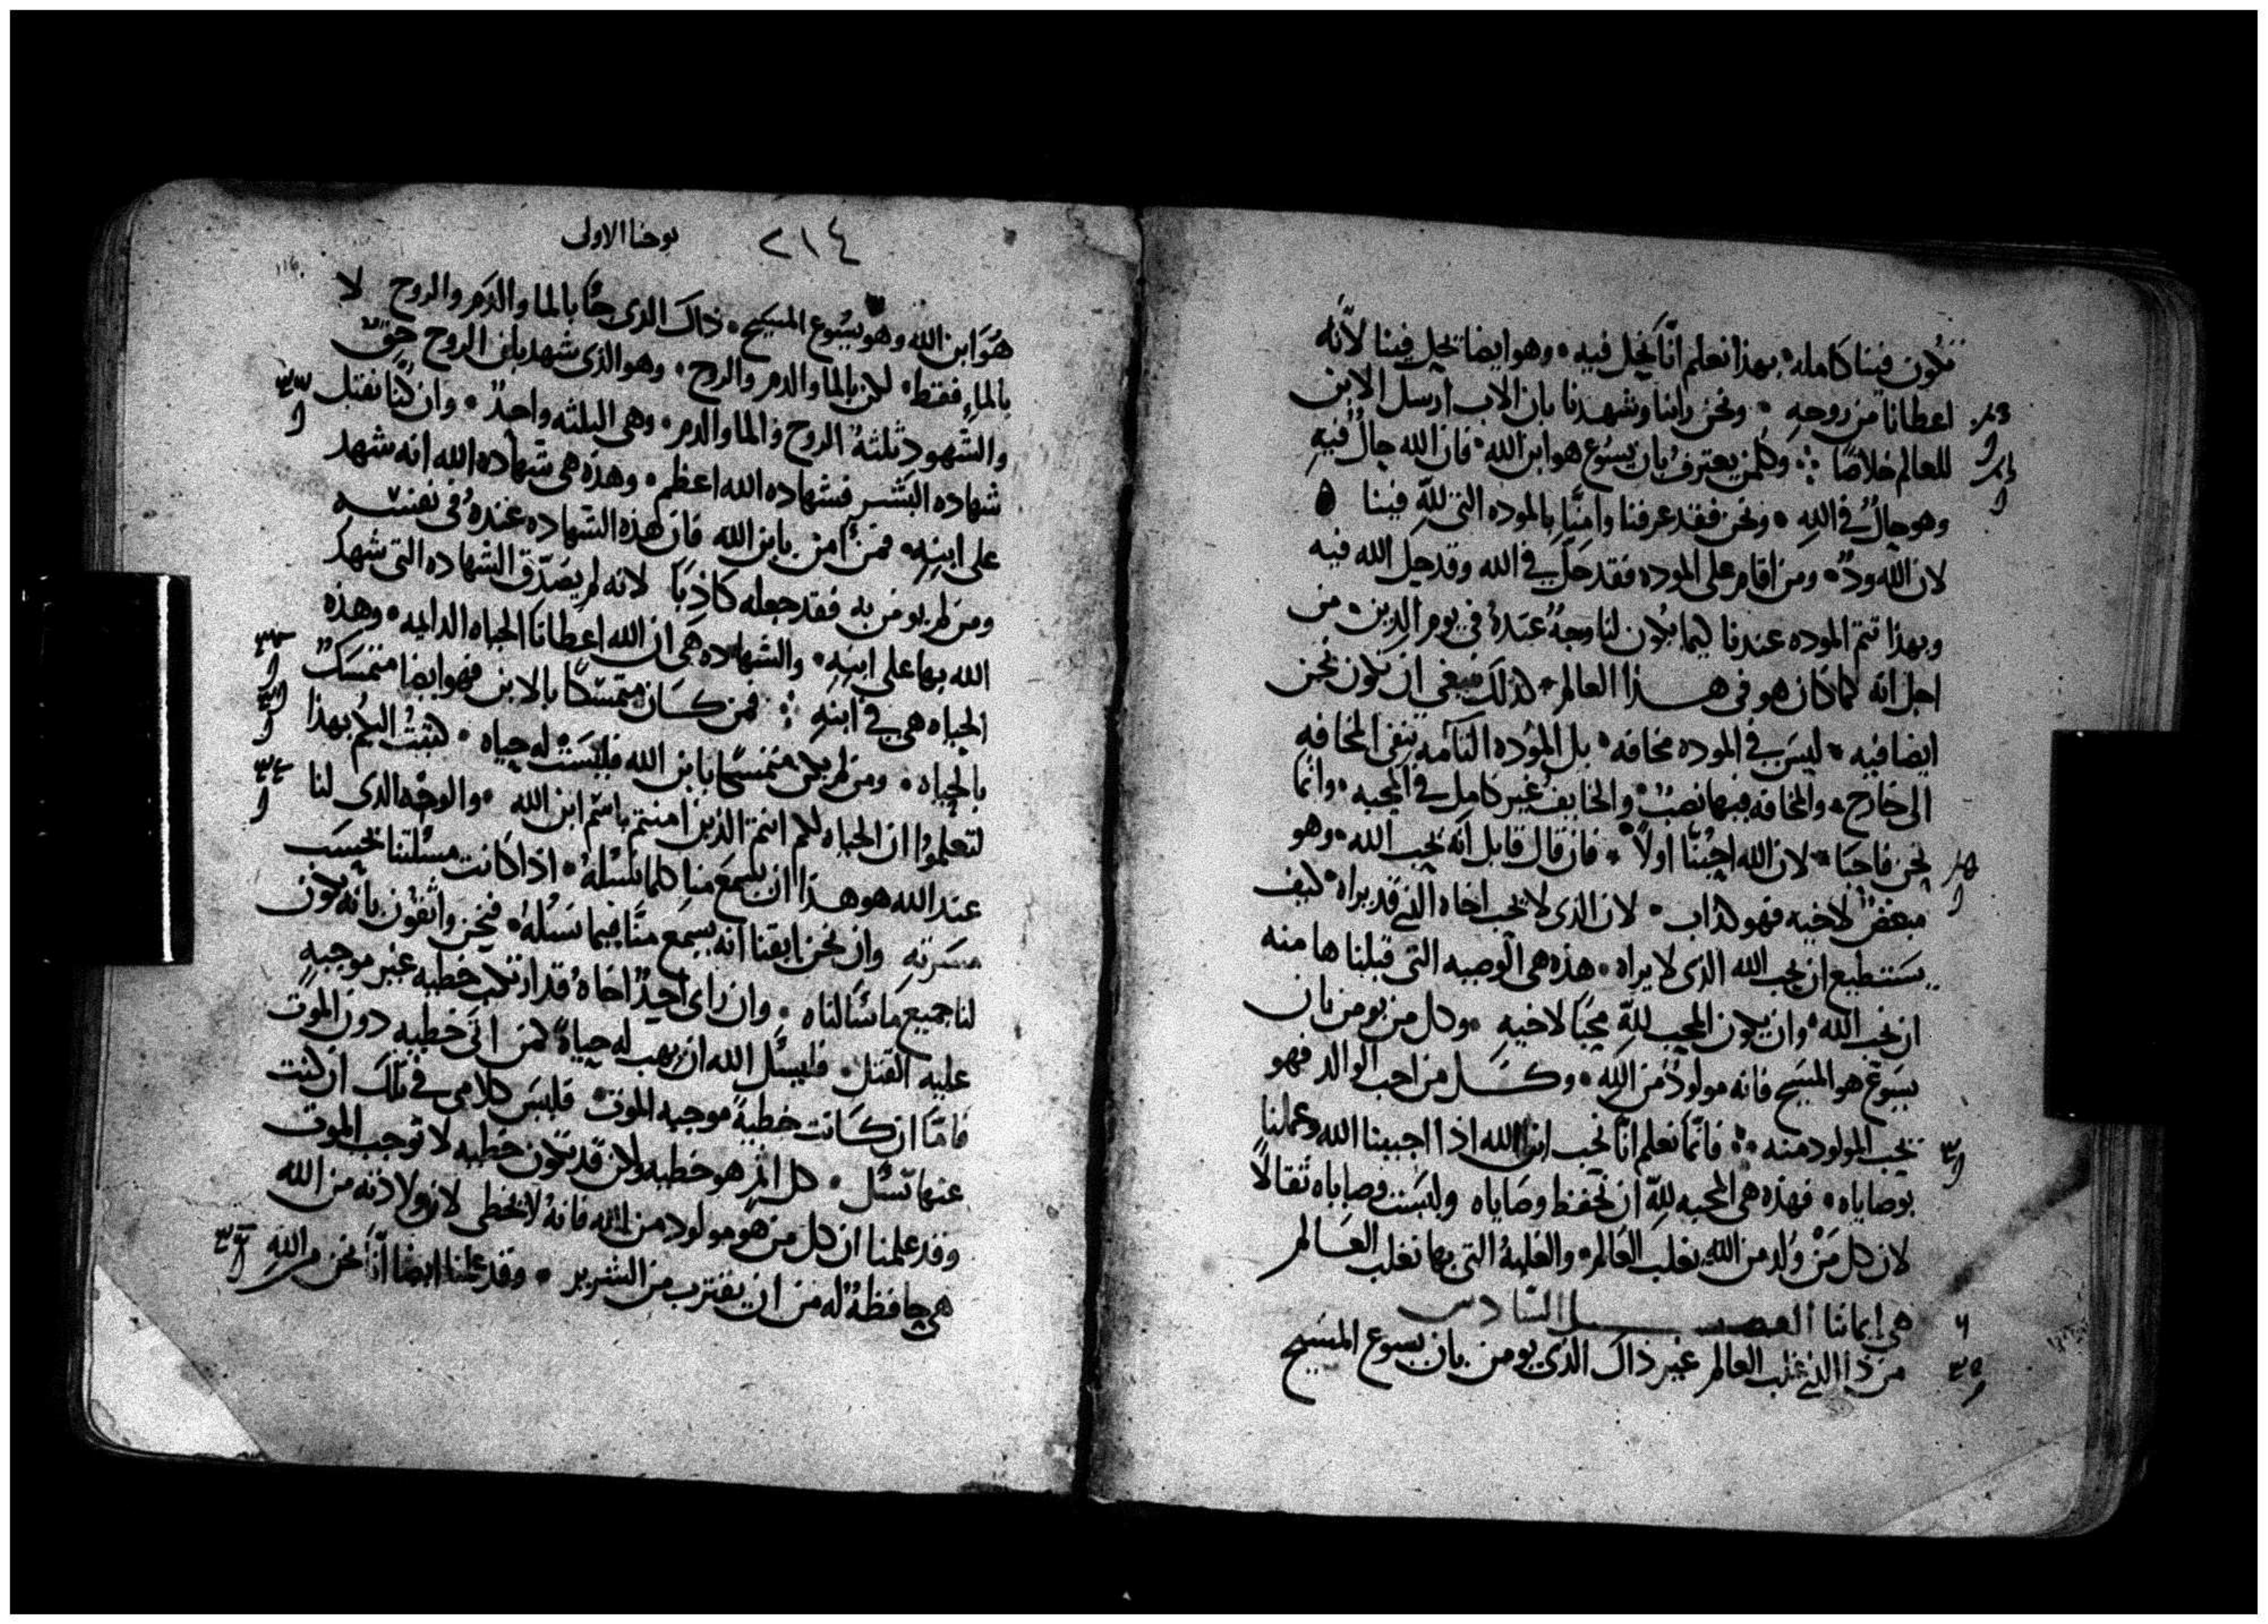 تكون فينا كامله بهذا نعلم انّا نحل فيه وهو ايضا يحل فينا لانّه
اعطانا من روحه ونحن راينا وشهدنا بان الاب ارسل الابن
للعالم خلاصًا وكلمن يعترف بان يسوع هو ابن الله فان الله حالٌ فيه
وهو حالٌ في الله ونحن فقد عرفنا وامنّا بالموده التي للّه فينا
لان الله ودٌ ومن اقام على الموده فقد حلّ في الله وقد حل الله فيه
وبهذا تتم الموده عندنا ليما يكون لنا وجهٌ عنده في يوم الدين من
اجل انه كما كان هو في هذا العالم كذلك ينبغي ان نكون نحن
ايضا فيه ليس في الموده مخافه بل الموده التآمه تنفي المخافه
الى خارج والمخافه فيها نصبٌ والخايف غير كامل في المحبه وانما
نحن فاحبا لان الله احبّنا اولاً فان قال قايل انه يحب الله وهو
مبغضٌ لاخيه فهو كذاب لان الذي لا يحب اخاه الذي قد يراه كيف
يستطيع ان يحب الله الذي لا يراه هذه هي الوصيه التي قبلناها منه
ان نحب الله وان يكون المحب للّه محبًا لاخيه وكل من يومن بان
يسوع هو المسيح فانه مولودٌ من الله وكل من احب الوالد فهو
يحب المولود منه فانّما نعلم انّا نحب ابن الله اذا احببنا الله وعملنا
بوصاياه فهذه هي المحبه للّه ان نحفظ وصاياه وليست وصاياه ثقالاً
لان كل مَنْ وُلد من الله يغلب العالم والغلبهُ التي بها نغلب العالم
هي ايماننا الفصل السادس
٦
من ذا الذي غلب العالم غير ذاك الذي يومن بان يسوع المسيح
٢١٤ يوحنا الاولى
هوَ ابن الله وهو يسوع المسيح ذاك الذي جاَ بالما والدم والروح لا
بالماءِ فقط لكن بالما والدم والروح وهو الذي شهد بان الروح حقٌ
والشهود ثلثةٌ الروح والما والدم وهي الثلثه واحدٌ وان كنّا نقبل
شهاده البشر فشهاده الله اعظم وهذه هي شهاده الله انه شهد
على ابنه فمن آمن بابن الله فان هذه الشهاده عندهُ في نفسه
ومن لم يومن به فقد جعله كاذبًا لانه لم يصدّق الشهاده التي شهد
الله بها على ابنه والشهاده هي ان الله اعطانا الحياه الدايمه وهذه
الحياه هي في ابنه فمن كان متمسكًا بالابن فهو ايضا متمسكٌ
بالحياه ومن لم يكن متمسكًا بابن الله فليسَتْ له حياه كتبتُ اليكم بهذا
لتعلموا ان الحياه لكم انتم الذين امنتم باسم ابن الله والوجه الذي لنا
عند الله هو هذا ان يسمع منا كلما نسئله اذا كانت مسئلتنا بحسب
مسرته وان نحن ايقنا انه يسمع منّا فيما نسئله فنحن واثقون بانه يكون
لنا جميع ما سألناه وان راى احدٌ اخاه قد ارتكب خطيه غير موجبهٍ
عليه القتل فليسئل الله ان يهب له حياةً لمن اتى خطيه دون الموت
فامّا ان كانت خطيةً موجبه الموت فليس كلامي في تلك ان كنت
عنها تسئل كل اثمٍ هو خطيه ولكن قد تكون خطيه لا توجب الموت
وقد علمنا ان كل من هو مولود من الله فانهُ لا يخطي لان ولادته من الله
هي حافظةٌ له من ان يقترب من الشرير وقد علمنا ايضا انّا نحن من الله